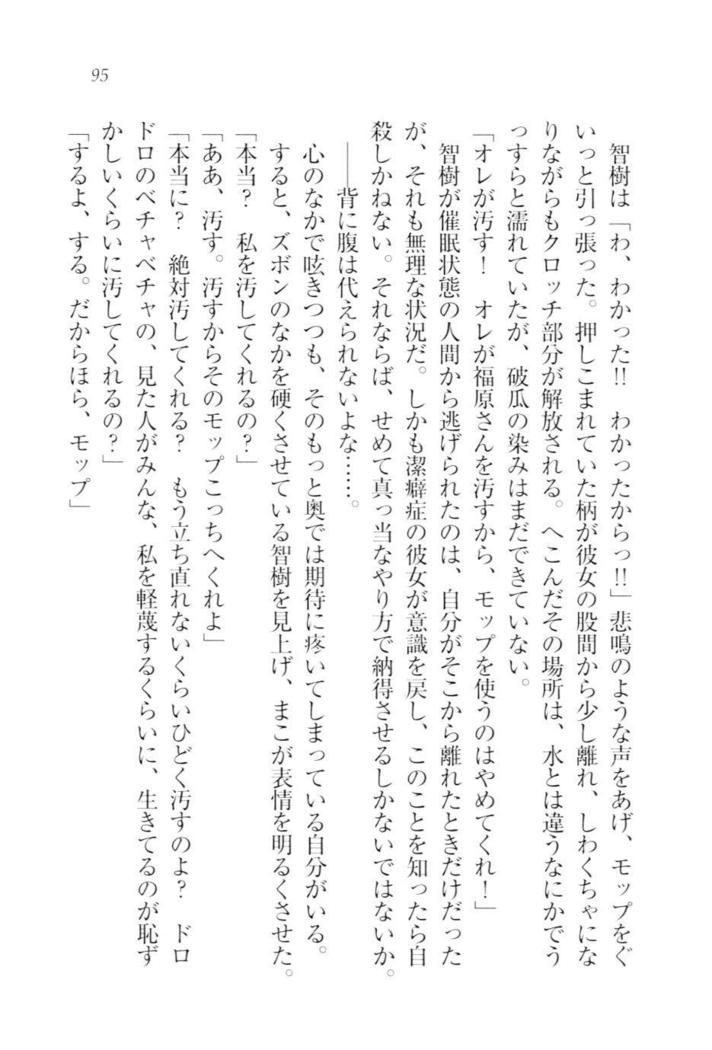 95
智樹は「わ、わかった!!　わかったからっ!!」悲鳴のような声をあげ、モップをぐ
いっと引っ張った。押しこまれていた柄が彼女の股間から少し離れ、しわくちゃにな
りながらもクロッチ部分が解放される。へこんだその場所は、水とは違うなにかでう
っすらと濡れていたが、破瓜の染みはまだできていない。
「オレが汚す！　オレが福原さんを汚すから、モップを使うのはやめてくれ！」
智樹が催眠状態の人間から逃げられたのは、自分がそこから離れたときだけだった
が、それも無理な状況だ。しかも潔癖症の彼女が意識を戻し、このことを知ったら自
殺しかねない。それならば、せめて真っ当なやり方で納得させるしかないではないか。
――背に腹は代えられないよな……。
心のなかで呟きつつも、そのもっと奥では期待に疼いてしまっている自分がいる。
すると、ズボンのなかを硬くさせている智樹を見上げ、まこが表情を明るくさせた。
「本当？　私を汚してくれるの？」
「ああ、汚す。汚すからそのモップこっちへくれよ」
「本当に？　絶対汚してくれる？　もう立ち直れないくらいひどく汚すのよ？　ドロ
ドロのベチャベチャの、見た人がみんな、私を軽蔑するくらいに、生きてるのが恥ず
かしいくらいに汚してくれるの？」
「するよ、する。だからほら、モップ」